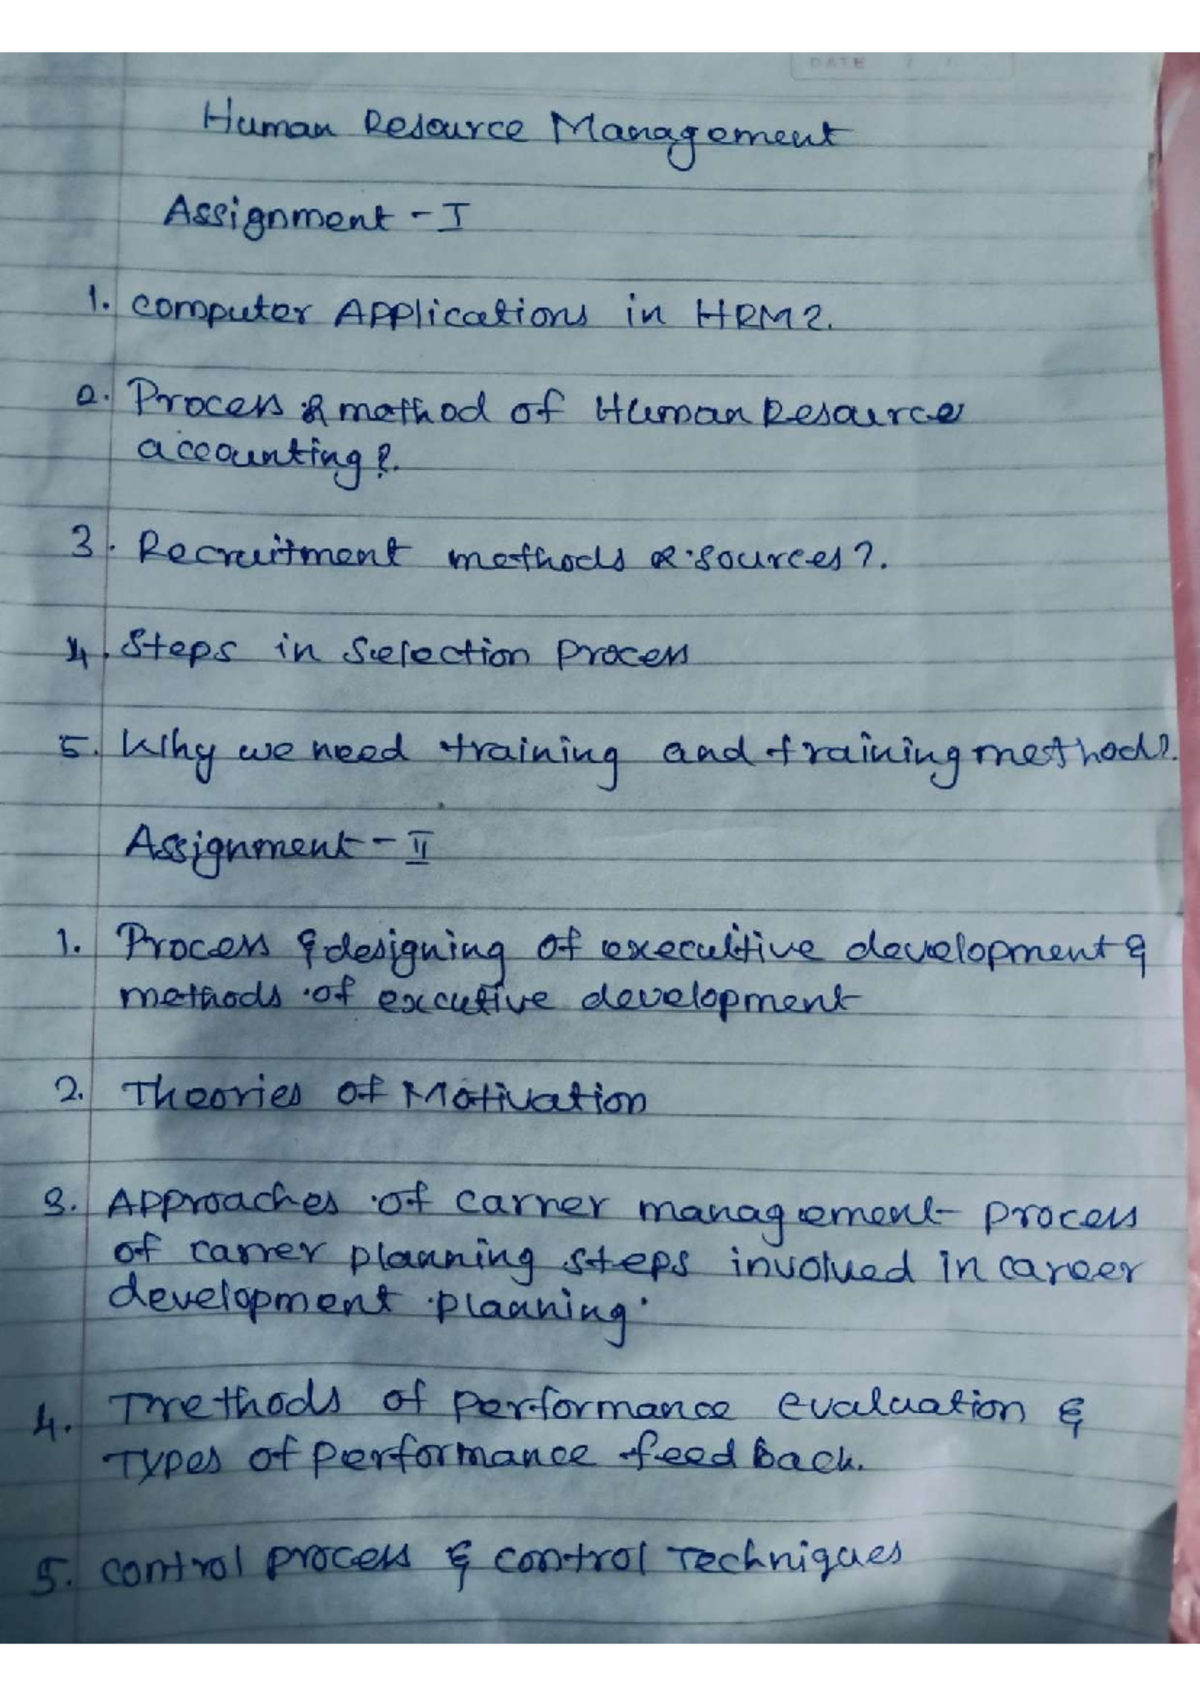 DATE
Human Resource Management
Assignment - I
1. Computer Applications in HRM?.
2. Process & method of Human Resource
accounting?.
3. Recruitment methods & sources?.
4. Steps in Selection Process
5. Why we need training and training method?.
Assignment - II
1. Process & designing of execultive development &
methods of excutive development
2. Theories of Motivation
3. Approaches of carrer management process
of carrer planning steps involved in career
development planning.
4. methods of performance evaluation &
Types of performance feed back.
5. control process & control Techniques